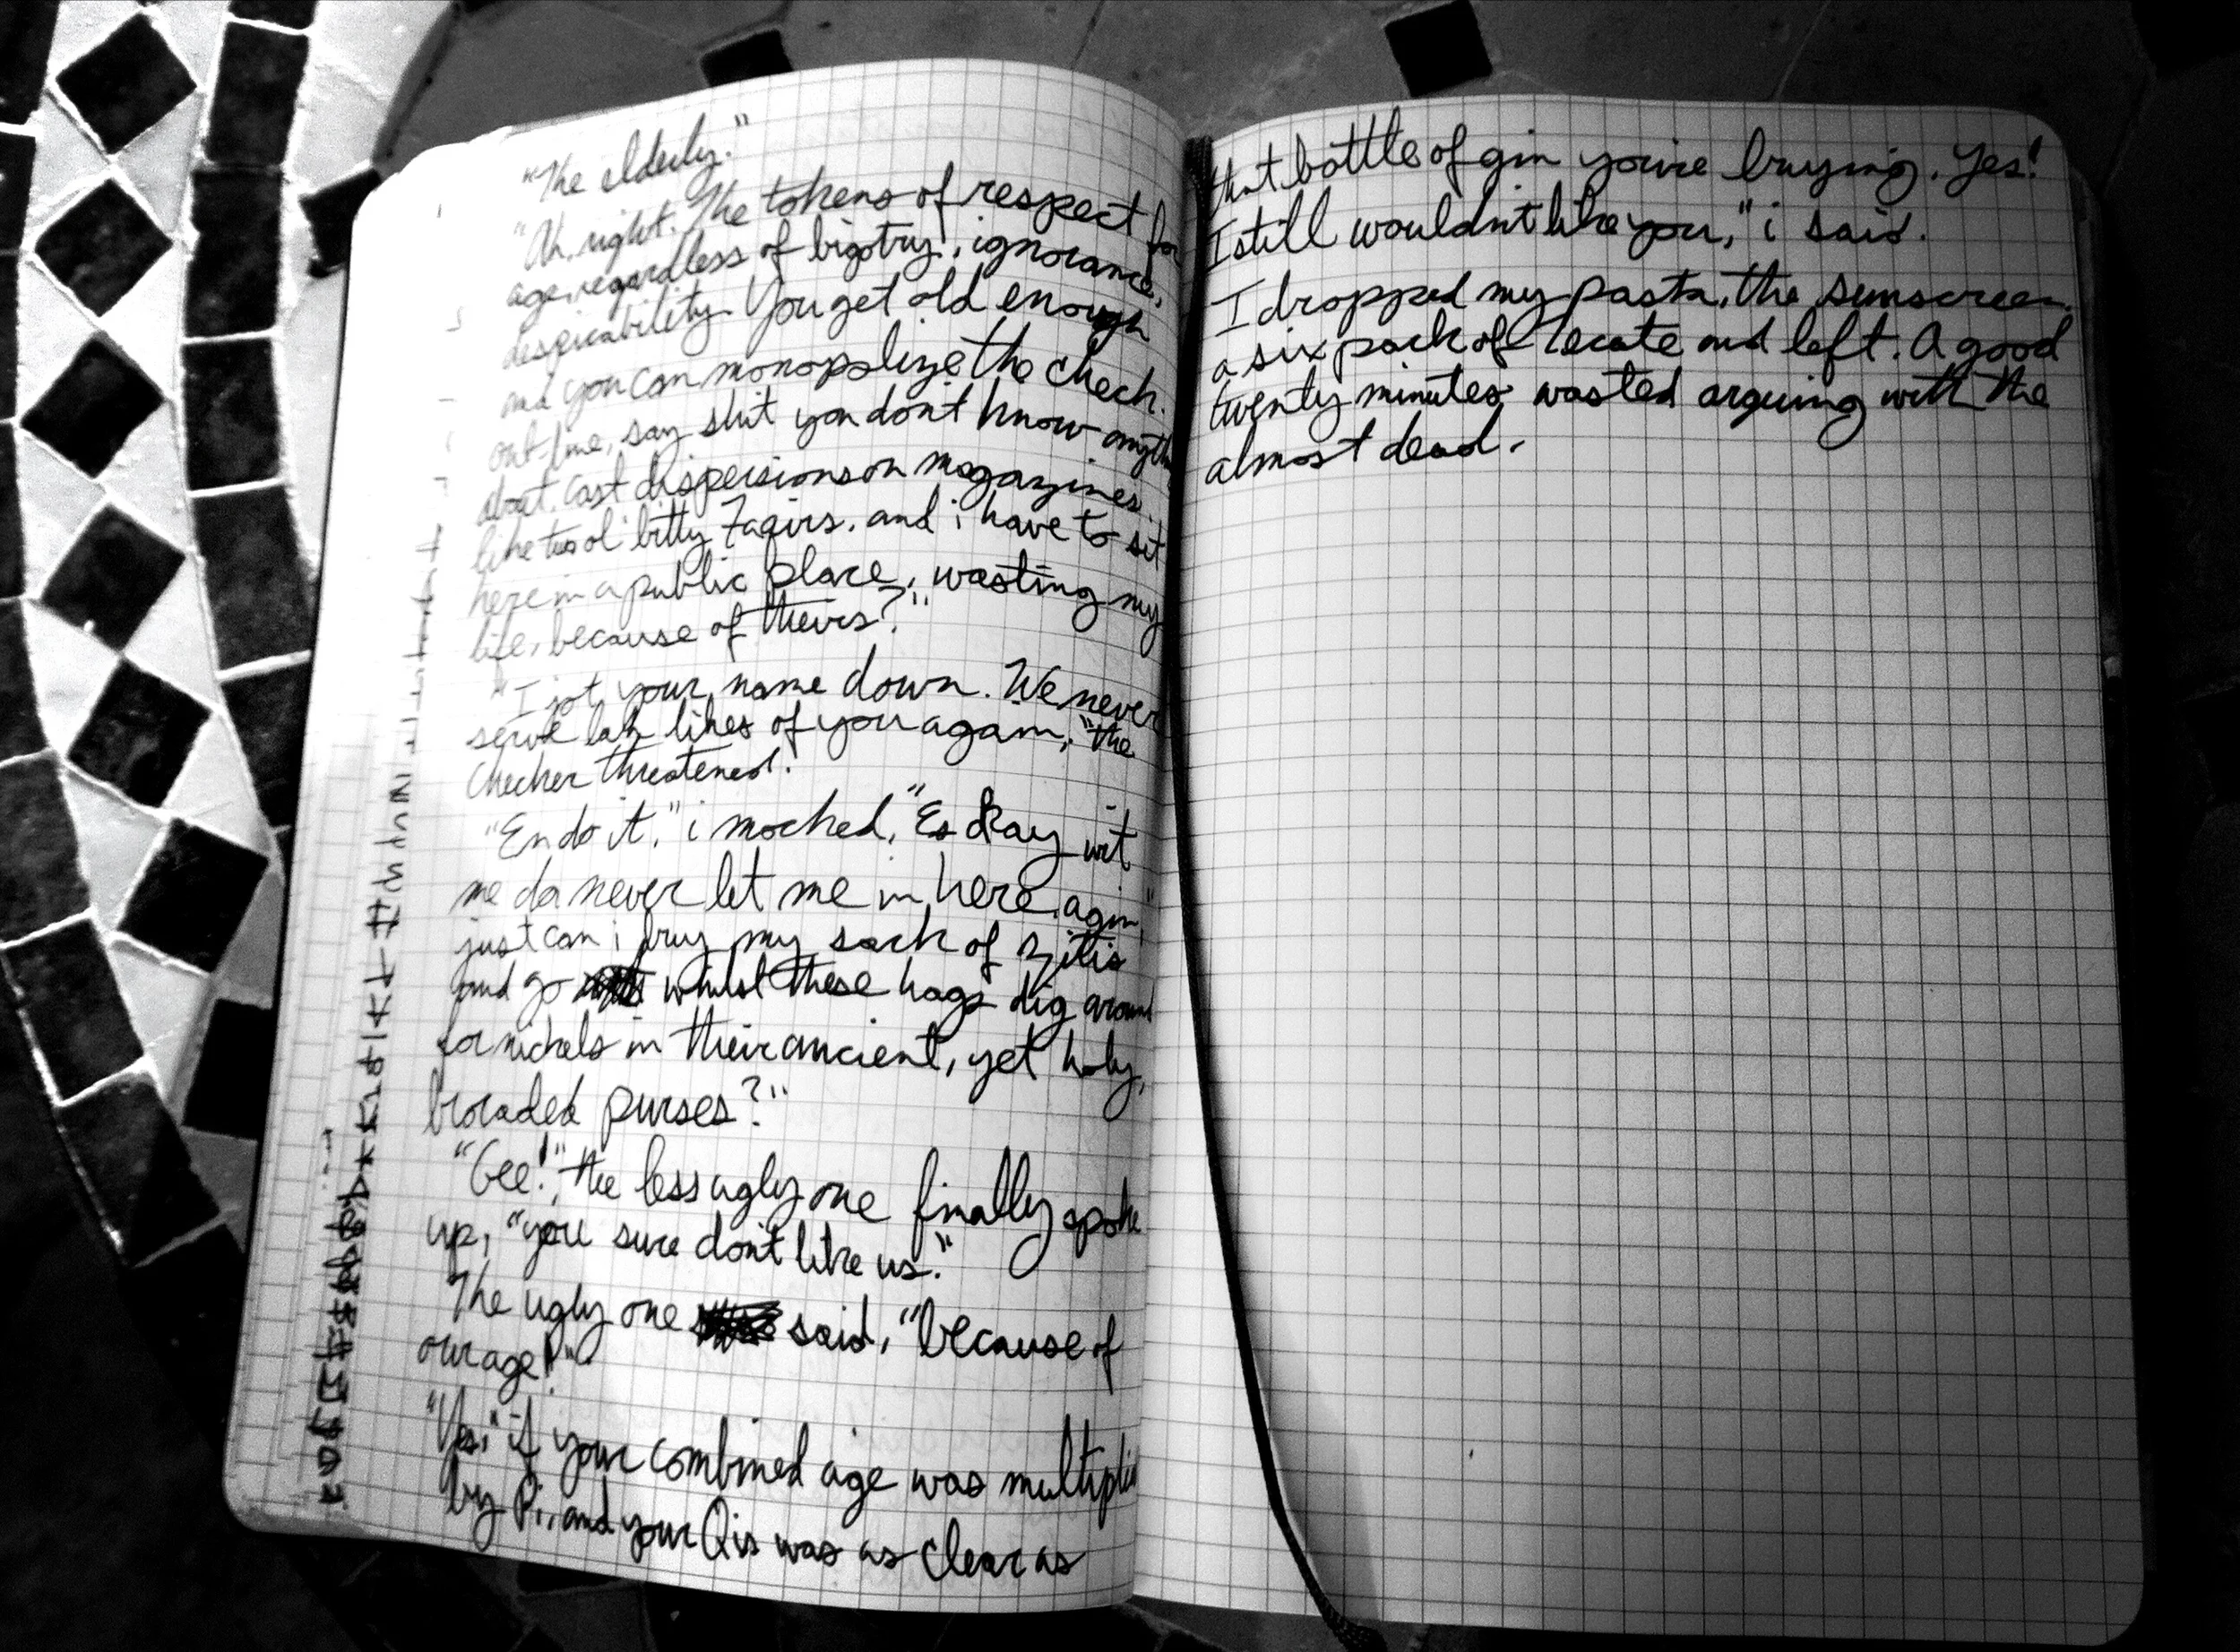 "The elderly."
"Ah, right. The tokens of respect for
age, regardless of bigotry, ignorance,
despicability. You get old enough
and you can monopolize the check
out line, say shit you don't know anythi
about. Cast dispersions on magazines,
like two ol' bitty and i have to sit
here in a public place, wasting my
life, because of theirs?"
"I jot your name down. We never
serve lak likes of you again," the
checker threatened.
"En do it," i mocked, "Es okay wit
me da never let me in here agin,"
just can i buy my sack of zitis
and go whilst these hags dig around
for nickels in their ancient, yet holy,
brocaded purses?"
"Gee!", the less ugly one finally spoke
up, "you sure don't like us."
The ugly one said, "because of
our age!"
"Yes," if your combined age was multiplie
by Pi, and your Qis was as clear as
that bottle of gin you're buying. Yes!
I still wouldn't like you," i said.
I dropped my pasta, the sunscreen,
a six pack of and left. A good
twenty minutes wasted arguing with the
almost dead.